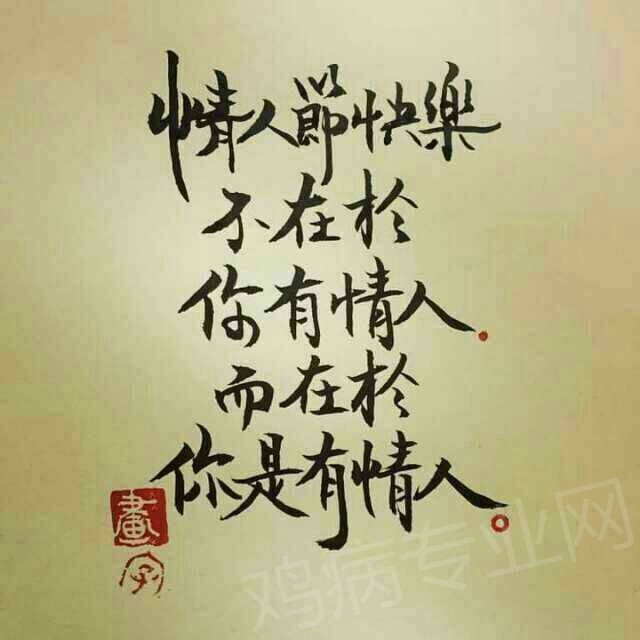 情人節快樂
不在於
你有情人.
而在於
你是有情人。
畫
字
鸡病专业网